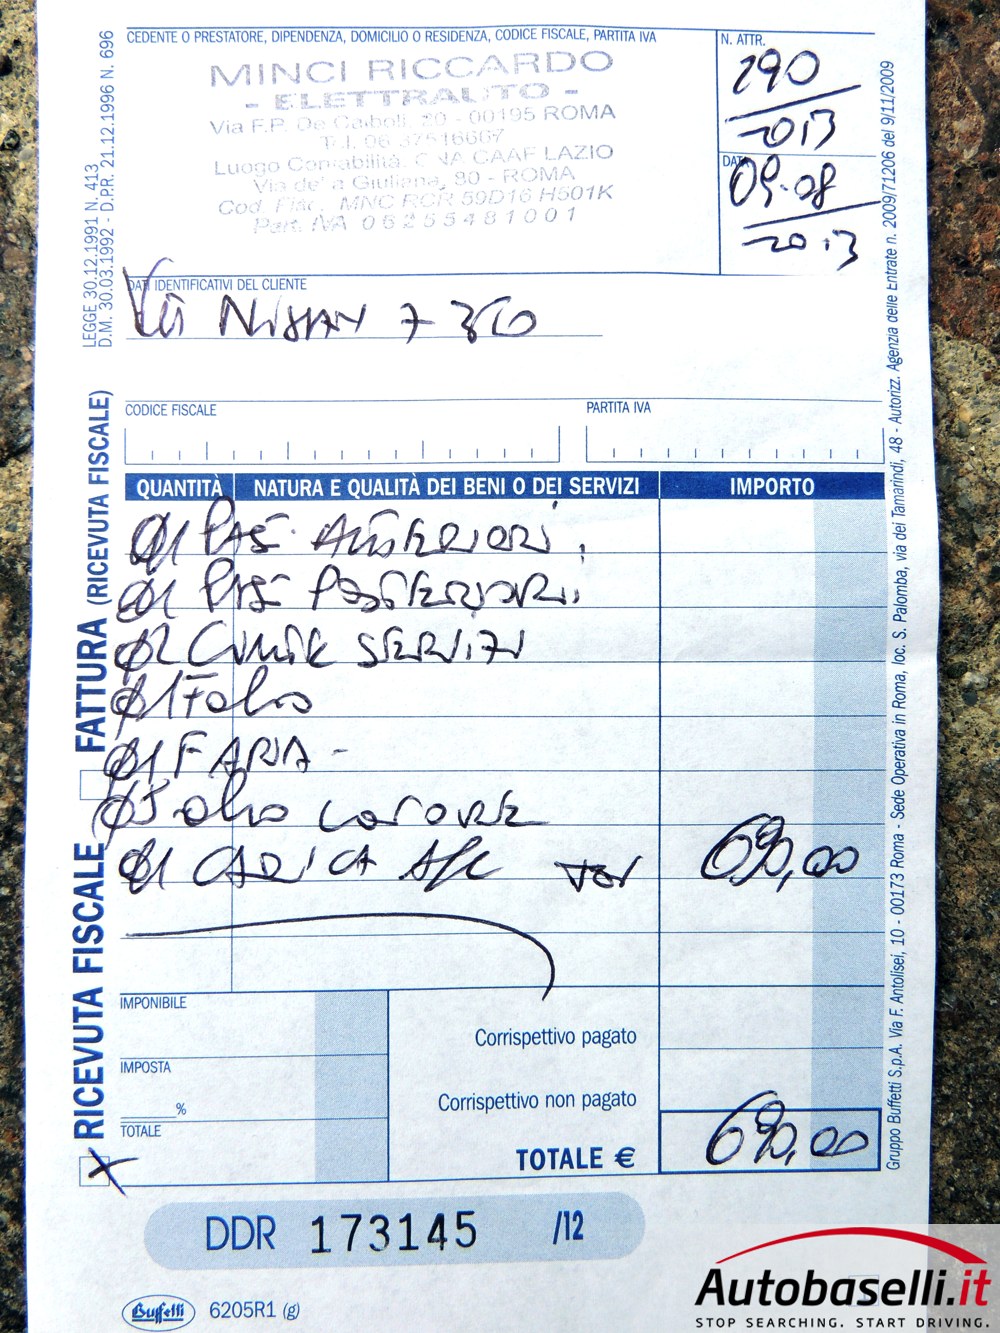 CEDENTE O PRESTATORE, DIPENDENZA, DOMICILIO O RESIDENZA, CODICE FISCALE, PARTITA IVA
MINCI RICCARDO
- ELETTRAUTO -
Via F.P. De Calboli, 20 - 00195 ROMA
Tel. 06 37516667
Luogo Contabilità, CNA CAAF LAZIO
Via della Giuliana, 80 - ROMA
Cod. Fisc. MNC RCR 59D16 H501K
Part. IVA 06255481001
N. ATTR.
290
2013
DATA
09-08
2013
DATI IDENTIFICATIVI DEL CLIENTE
NISSAN 350
CODICE FISCALE
PARTITA IVA
QUANTITÀ NATURA E QUALITÀ DEI BENI O DEI SERVIZI IMPORTO
01 ANTERIORI
01 POSTERIORI
02 SERVIZI
01 F olio
01 F ARIA -
olio
01 CARICA A/C TOT 690,00
IMPONIBILE
Corrispettivo pagato
IMPOSTA
%
Corrispettivo non pagato
TOTALE
TOTALE € 690,00
X
DDR 173145 /12
Buffetti 6205R1 (g)
LEGGE 30.12.1991 N. 413
D.M. 30.03.1992 - D.P.R. 21.12.1996 N. 696
RICEVUTA FISCALE FATTURA (RICEVUTA FISCALE)
Gruppo Buffetti S.p.A. Via F. Antolisei, 10 - 00173 Roma - Sede Operativa in Roma, loc. S. Palomba, via dei Tamarindi, 48 - Autorizz. Agenzia delle Entrate n. 2009/71206 del 9/11/2009
Autobaselli.it
STOP SEARCHING. START DRIVING.